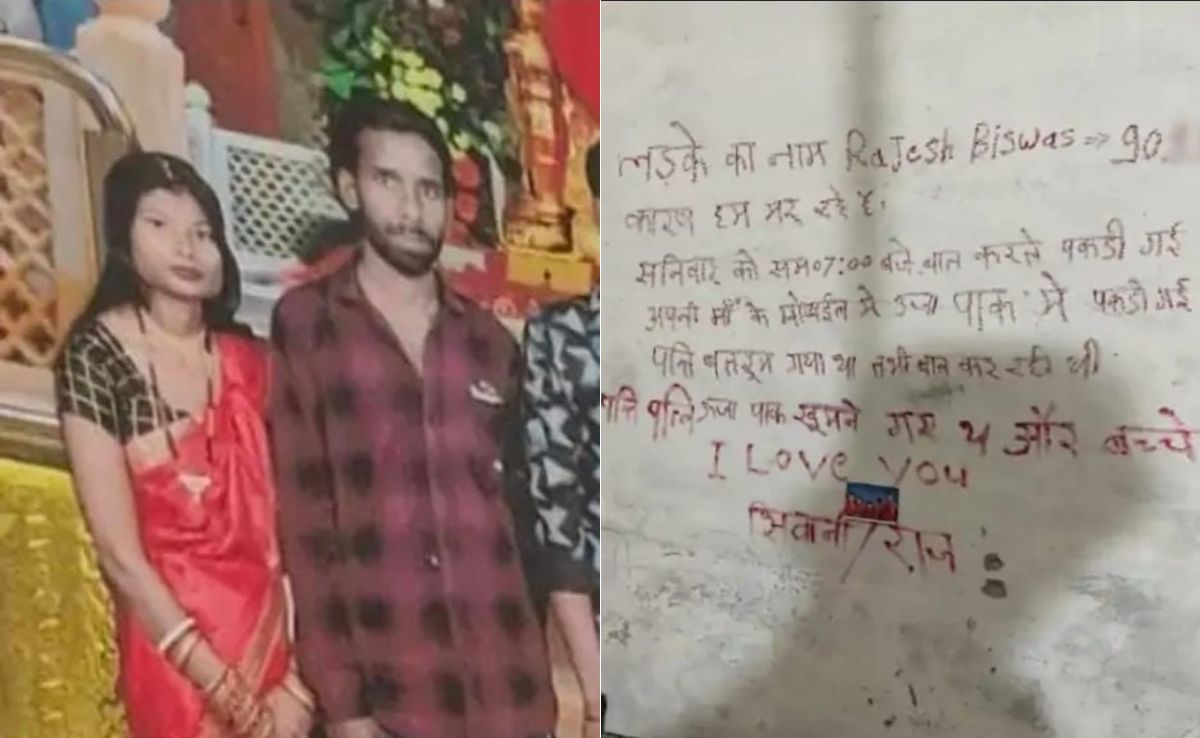 लड़के का नाम RaJesh Biswas ⇒ 90
कारण हम मर रहे है।
सनिवार को सम07:00 बजे बात करते पकडी गई
अपनी माँ के मोबाईल से उर्जा पाक मे पकडी गई
पत्नि बतरूम गया था तभी बात कर रही थी
पत्ति पत्नि उर्जा पाक घूमने गए थे और बच्चे
I Love you
शिवानी/राज